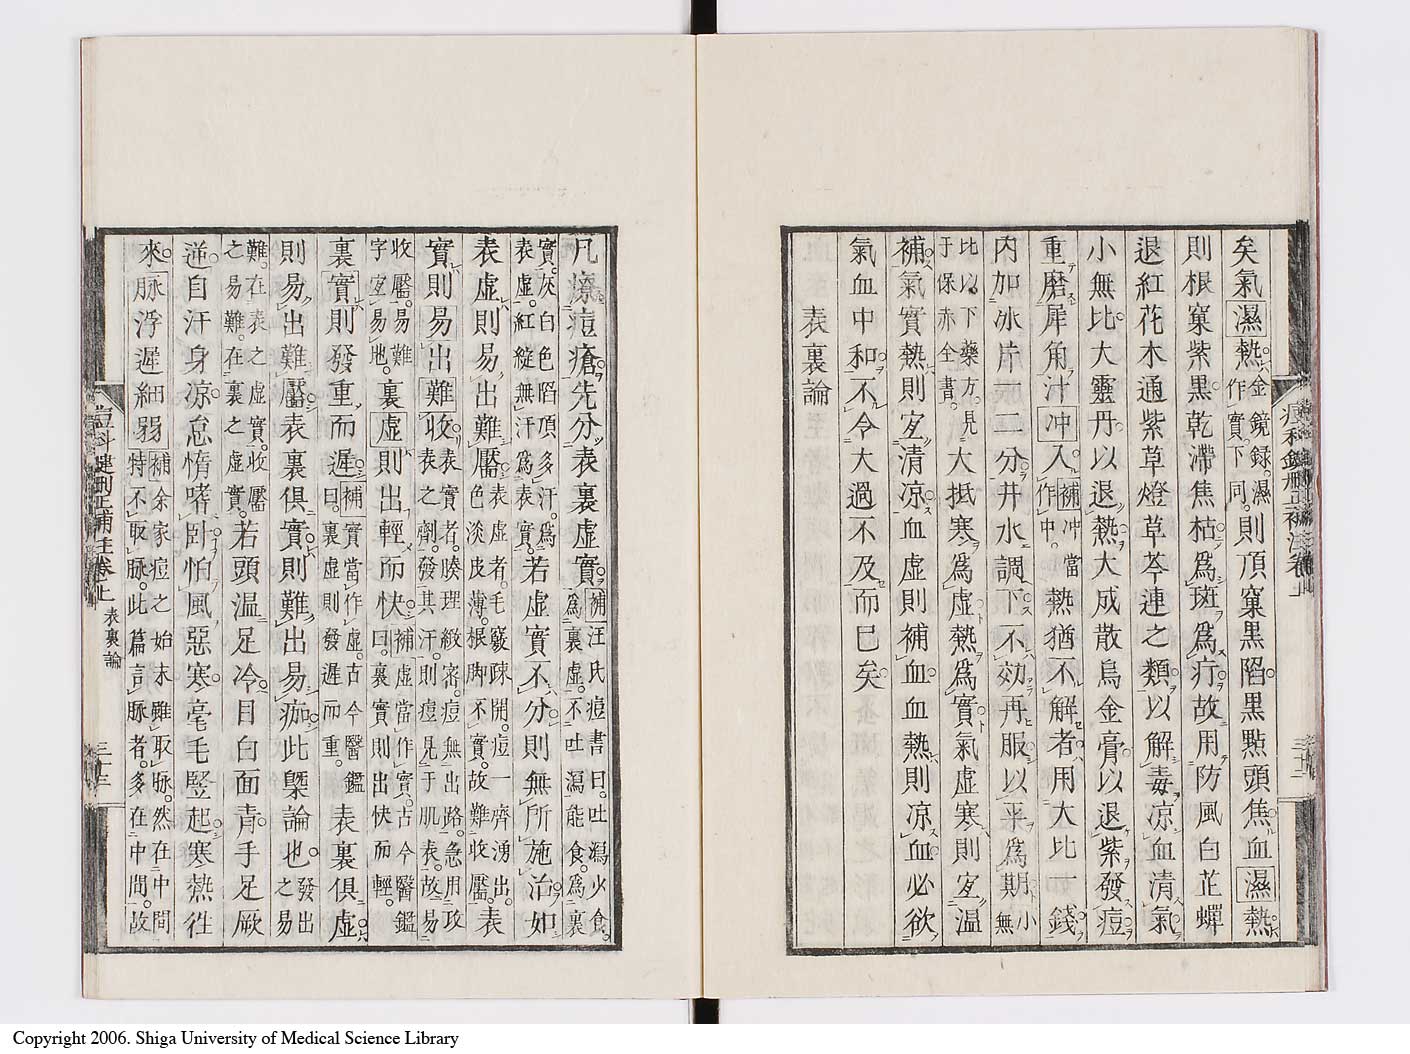 矣氣濕熱金鏡録。濕作實。下同。則頂窠黒陷黒㸃頭焦血濕熱
則根窠紫黒乾滯焦枯爲斑爲疔故用防風白芷蟬
退紅花木通紫草燈草芩連之類以解毒凉血清氣
小無比大靈丹以退熱大成散烏金膏以退紫發痘
重磨犀角汁冲入補冲當作中。熱猶不解者用大比一錢
内加冰片一二分井水調下不効再服以平爲期小無
比以下藥方。見于保赤全書。大抵寒爲虚熱爲實氣虚寒則宜温
補氣實熱則宜清凉血虚則補血血熱則凉血必欲
氣血中和不令大過不及而已矣
表裏論
凡療痘瘡先分表裏虚實補汪氏痘書曰。吐瀉少食。爲裏虚。不吐瀉能食。爲裏
實。灰白色陷頂多汗。爲表虚。紅綻無汗爲表實。若虚實不分則無所施治如
表虚則易出難靨色淡皮薄。根脚不實。故難收靨。表虚者。毛竅疎開。痘一齊湧出。表
實則易出難收表實者。腠理緻密。痘無出路。急用攻表之劑。發其汗。則痘見于肌表。故易
收靨。易難字宜易地。裏虚則出輕而快補虚當作實。古今醫鑑曰。裏實則出快而輕。
裏實則發重而遲補實當作虚。古今醫鑑曰。裏虚則發遲而重。表裏俱虚
則易出難靨表裏俱實則難出易痂此槩論也發出之易
難。在表之虚實。收靨之易難。在裏之虚實。若頭温足冷目白面青手足厥
逆自汗身凉怠惰嗜臥怕風惡寒毫毛竪起寒熱徃
來。脉浮遲細弱補余家痘之始末雖取脉。然在中間特不取脉。此篇言脉者。多在中間。故
痘科鍵刪正補注卷上
三十二
痘科鍵刪正補注卷上
表裏論
三十三
Copyright 2006. Shiga University of Medical Science Library